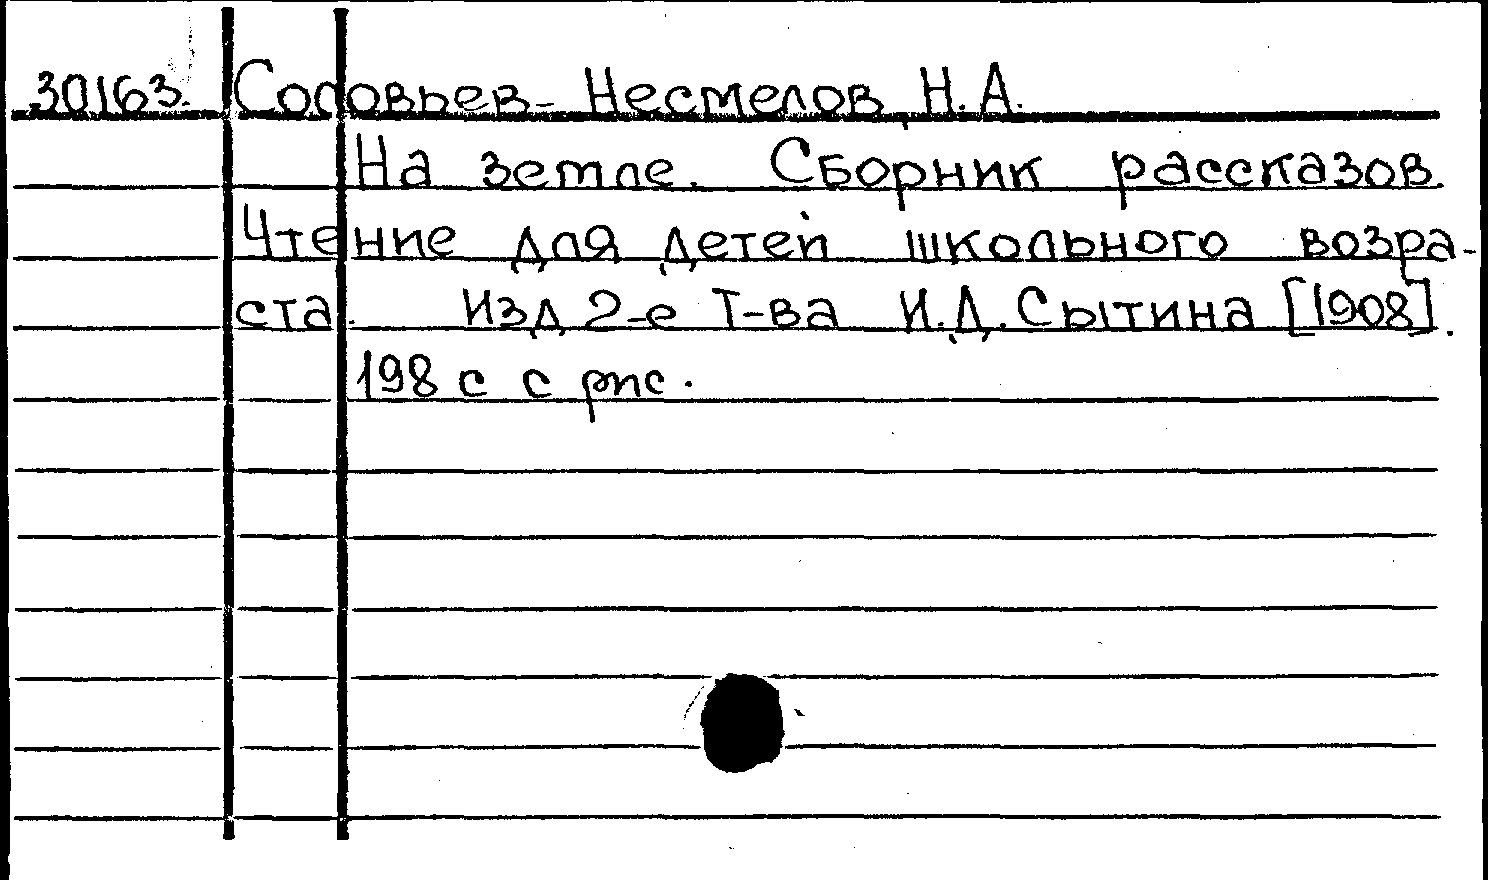 30163. Соловьев-Несмелов, Н.А.
На земле. Сборник рассказов.
Чтение для детей школьного возра-
ста. Изд 2-е Т-ва И.Д.Сытина [1908].
198 с с рис.